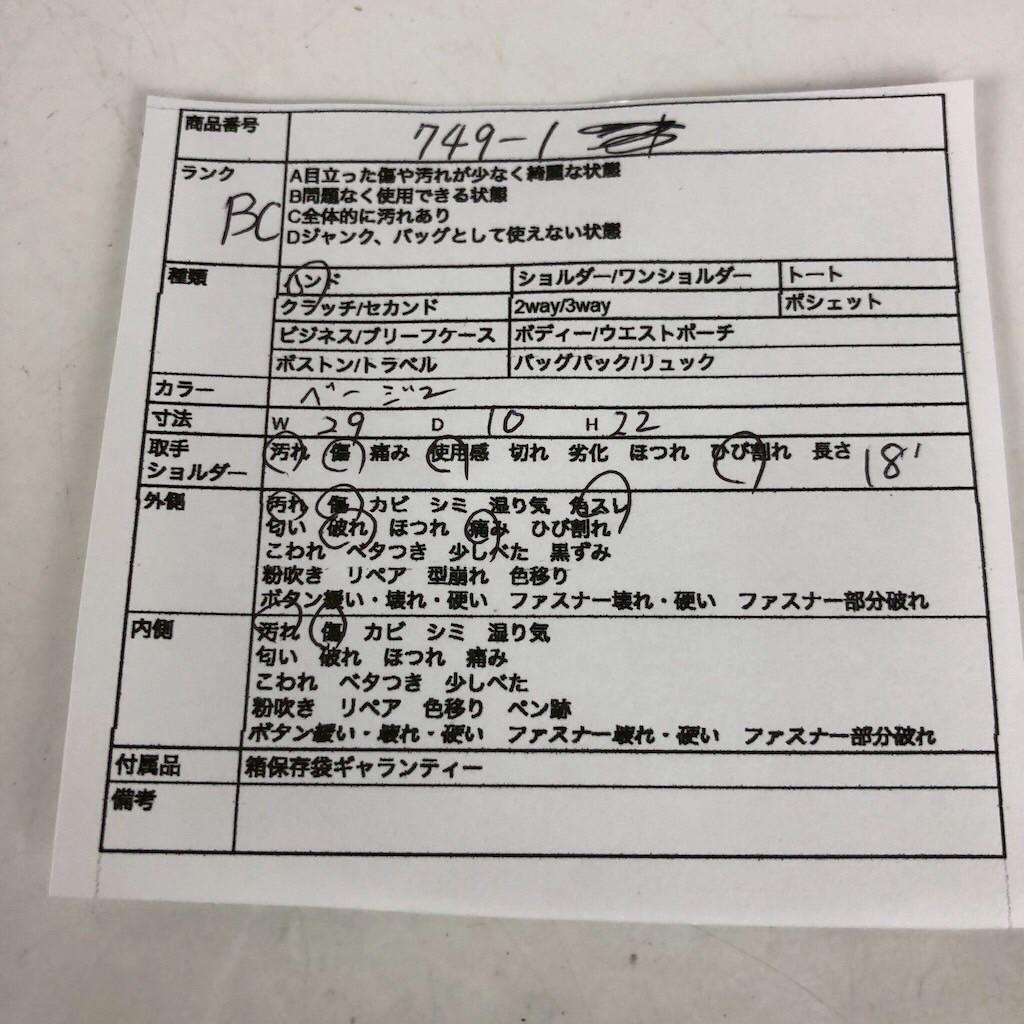 商品番号 749-1
ランク BC A目立った傷や汚れが少なく綺麗な状態
B問題なく使用できる状態
C全体的に汚れあり
Dジャンク、バッグとして使えない状態
種類 ハンド ショルダー/ワンショルダー トート
クラッチ/セカンド 2way/3way ポシェット
ビジネス/ブリーフケース ボディー/ウエストポーチ
ボストン/トラベル バッグパック/リュック
カラー ベージュ
寸法 W 29 D 10 H 22
取手 汚れ 傷 痛み 使用感 切れ 劣化 ほつれ ひび割れ 長さ 18
ショルダー
外側 汚れ 傷 カビ シミ 湿り気 角スレ
匂い 破れ ほつれ 痛み ひび割れ
こわれ ベタつき 少しべた 黒ずみ
粉吹き リペア 型崩れ 色移り
ボタン緩い・壊れ・硬い ファスナー壊れ・硬い ファスナー部分破れ
内側 汚れ 傷 カビ シミ 湿り気
匂い 破れ ほつれ 痛み
こわれ ベタつき 少しべた
粉吹き リペア 色移り ペン跡
ボタン緩い・壊れ・硬い ファスナー壊れ・硬い ファスナー部分破れ
付属品 箱保存袋ギャランティー
備考